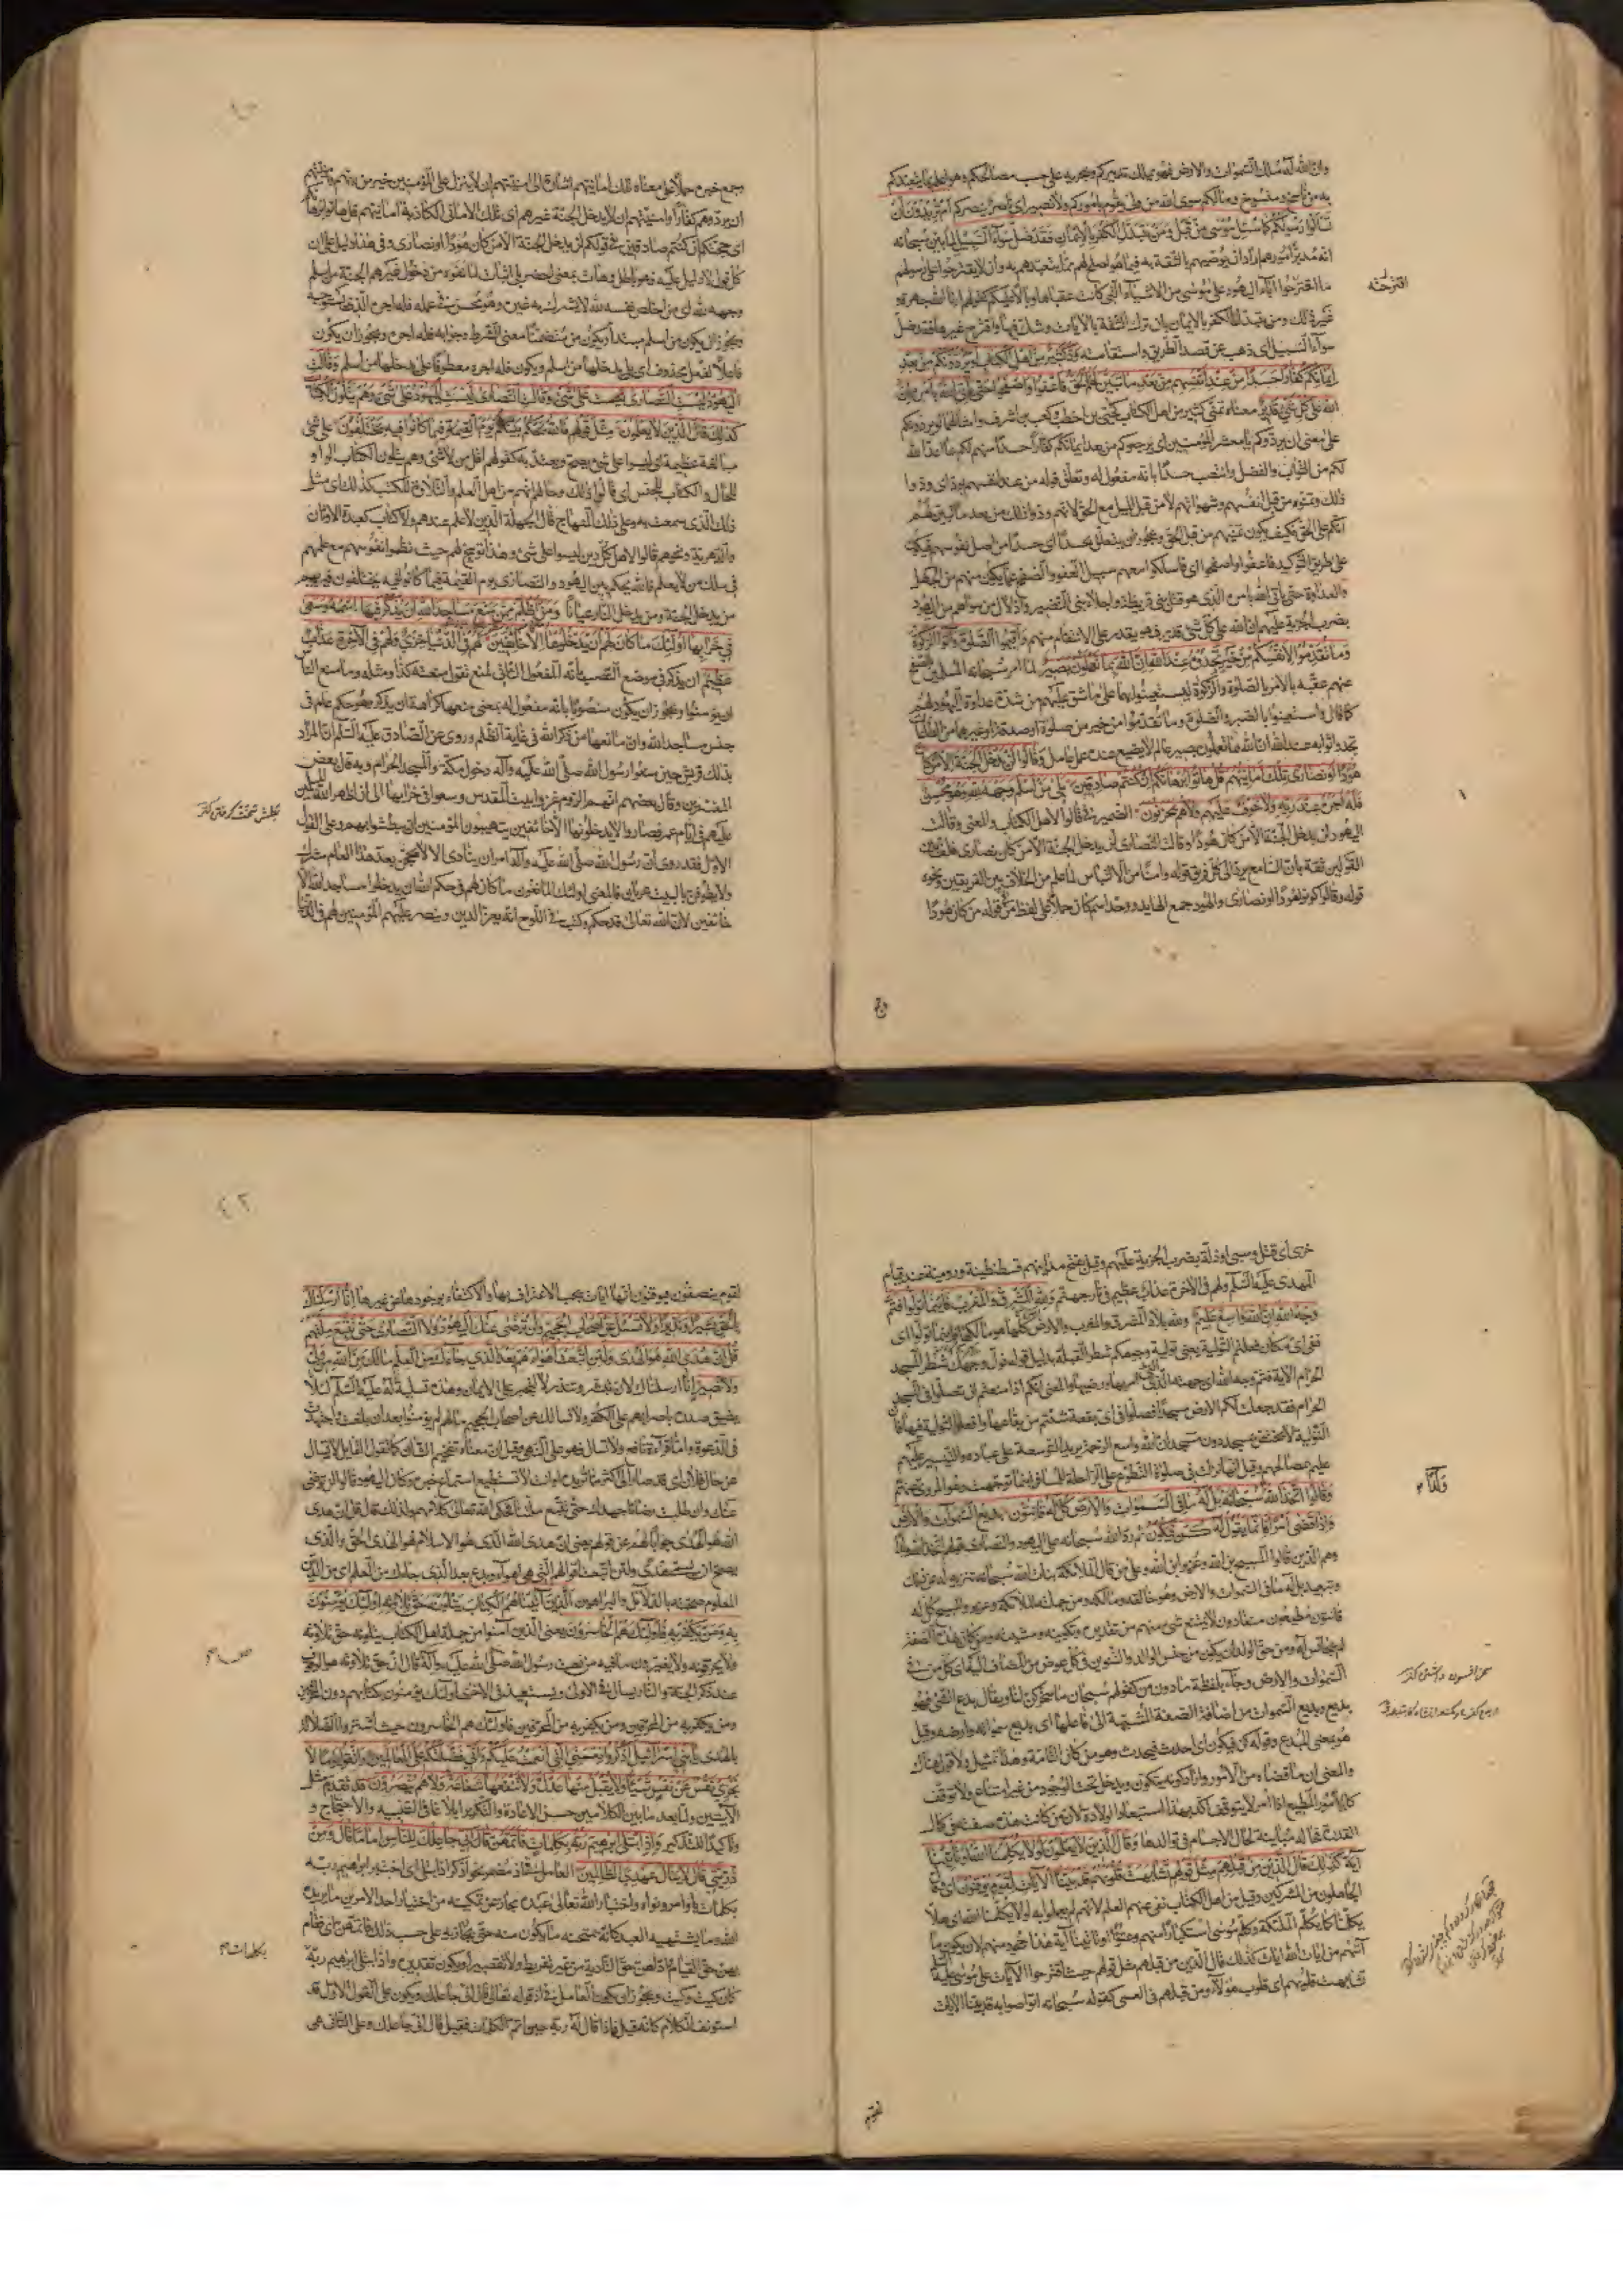 وان الله له ملك السموات والارض فهو يملك تدبيركم ويجريه على حسب مصالحكم وهو اعلم بما يتعبدكم
به من ناسخ ومنسوخ وما لكم سوى الله من ولى يقوم باموركم ولا نصير اى ناصر ينصركم أم تريدون أن
تسألوا رسولكم كما سئل موسى من قبل ومن يتبدل الكفر بالإيمان فقد ضل سواء السبيل لما بين سبحانه
انه مدبر امورهم اراد ان يوصيهم بالثقة به فيما هو اصلح لهم مما يتعبدهم به وان لا يقترحوا على رسولهم
ما اقترحوا آباء اليهود على موسى من الاشياء التى كانت عقباها وبالا عليهم كقولهم ارنا الله جهرة و
اقترحته
غير ذلك ومن يتبدل الكفر بالايمان بان ترك الثقة بالايات وشك فيها واقترح غيرها فقد ضل
سواء السبيل اى ذهب عن قصد الطريق واستقامته ود كثير من أهل الكتاب لو يردونكم من بعد
إيمانكم كفارا حسدا من عند أنفسهم من بعد ما تبين لهم الحق فاعفوا واصفحوا حتى يأتي الله بأمره إن
الله على كل شيء قدير معناه تمنى كثير من اهل الكتاب كحيى بن اخطب وكعب بن اشرف وامثالهما لو يردونكم
على معنى ان يردوكم يا معشر المؤمنين اى يرجعوكم من بعد ايمانكم كفارا حسدا منهم لكم بما اعد الله
لكم من الثواب والفضل وانتصب حسدا بانه مفعول له وتعلق قوله من عند انفسهم بود اى ودوا
ذلك وتمنوه من قبل انفسهم وشهواتهم لا من قبل الميل مع الحق لانهم ودوا ذلك من بعد ما تبين لهم
انكم على الحق فكيف يكون تمنيهم من قبل الحق ويجوز ان يتعلق بحسدا اى حسدا من اصل نفوسهم فيكون
على طريق التوكيد فاعفوا واصفحوا اى فاسلكوا معهم سبيل العفو والصفح عما يكون منهم من الجهل
والعداوة حتى يأتى الله بامره الذى هو قتل بنى قريظة واجلاء بنى النضير واذلال من سواهم من اليهود
بضرب الجزية عليهم ان الله على كل شئ قدير فهو يقدر على الانتقام منهم وأقيموا الصلوة وآتوا الزكوة
وما تقدموا لأنفسكم من خير تجدوه عند الله إن الله بما تعملون بصير لما امر سبحانه المسلمين بالصفح
عنهم عقبه بالامر بالصلوة والزكوة ليستعينوا بهما على ما شق عليهم من شدة عداوة اليهود لهم
كما قال واستعينوا بالصبر والصلوة وما تقدموا من خير من صلوة او صدقة او غيرهما من الطاعات
تجدوا ثوابه عند الله ان الله بما تعملون بصير عالم لا يضيع عنده عمل عامل وقالوا لن يدخل الجنة إلا من كان
هودا أو نصارى تلك أمانيهم قل هاتوا برهانكم إن كنتم صادقين بلى من أسلم وجهه لله وهو محسن
فله أجره عند ربه ولا خوف عليهم ولا هم يحزنون الضمير فى قالوا لاهل الكتاب والمعنى وقالت
اليهود لن يدخل الجنة الا من كان هودا وقالت النصارى لن يدخل الجنة الا من كان نصارى فلف بين
القولين ثقة بان السامع يرد الى كل فريق قوله وامنا من الالتباس لما علم من الخلاف بين الفريقين ونحوه
قوله وقالوا كونوا هودا او نصارى والهود جمع الهايد ووحد اسم كان حملا على لفظ من فى قوله من كان هودا
وجمع خبره حملا على معناه تلك امانيهم اشارة الى امنيتهم ان لا ينزل على المؤمنين خير من ربهم وامنيتهم
ان يردوهم كفارا وامنيتهم ان لا يدخل الجنة غيرهم اى تلك الامانى الكاذبة امانيهم قل هاتوا برهانكم
اى حجتكم ان كنتم صادقين فى قولكم لن يدخل الجنة الا من كان هودا او نصارى وفى هذا دليل على ان
كل قول لا دليل عليه فهو باطل وهات بمعنى احضر بلى اثبات لما نفوه من دخول غيرهم الجنة من اسلم
وجهه لله اى من اخلص نفسه لله لا يشرك به غيره وهو محسن فى عمله فله اجره الذى يستوجبه
ويجوز ان يكون من اسلم مبتدأ ويكون من متضمنا معنى الشرط وجوابه فله اجره ويجوز ان يكون
فاعلا لفعل محذوف اى بلى يدخلها من اسلم ويكون فله اجره معطوفا على يدخلها من اسلم وقالت
اليهود ليست النصارى على شيء وقالت النصارى ليست اليهود على شيء وهم يتلون الكتاب
كذلك قال الذين لا يعلمون مثل قولهم فالله يحكم بينهم يوم القيمة فيما كانوا فيه يختلفون على شئ
مبالغة عظيمة اى ليسوا على شئ يصح ويعتد به كقولهم اقل من لا شئ وهم يتلون الكتاب الواو
للحال والكتاب للجنس اى قالوا ذلك وحالهم انهم من اهل العلم والتلاوة للكتب كذلك اى مثل
ذلك الذى سمعت به وعلى ذلك المنهاج قال الجهلة الذين لا علم عندهم ولا كتاب كعبدة الاوثان
والدهرية ونحوهم قالوا لاهل كل دين ليسوا على شئ وهذا توبيخ لهم حيث نظموا نفوسهم مع علمهم
فى سلك من لا يعلم فالله يحكم بين اليهود والنصارى يوم القيمة فيما كانوا فيه يختلفون فيريهم
من يدخل الجنة ومن يدخل النار عيانا ومن أظلم ممن منع مساجد الله أن يذكر فيها اسمه وسعى
في خرابها أولئك ما كان لهم أن يدخلوها إلا خائفين لهم في الدنيا خزي ولهم في الآخرة عذاب
عظيم ان يذكر فى موضع النصب بانه المفعول الثانى لمنع تقول منعته كذا ومثله وما منع الناس
ان يؤمنوا ويجوز ان يكون منصوبا بانه مفعول له بمعنى منعها كراهة ان يذكر وهو حكم عام فى
جنس مساجد الله وان مانعها من ذكر الله فى غاية الظلم وروى عن الصادق عليه السلم ان المراد
بذلك قريش حين منعوا رسول الله صلى الله عليه وآله دخول مكة والمسجد الحرام وبه قال بعض
المفسرين وقال بعضهم انهم الروم غزوا بيت المقدس وسعوا فى خرابها الى ان اظهر الله المسلمين
عليهم فى ايام عمر فصاروا لا يدخلونها الا خائفين يتهيبون المؤمنين ان يبطشوا بهم وعلى القول
الاول فقد روى ان رسول الله صلى الله عليه وآله امر ان ينادى الا لا يحجن بعد هذا العام مشرك
ولا يطوفن بالبيت عريان فالمعنى اولئك المانعون ما كان لهم فى حكم الله ان يدخلوا مساجد الله الا
خائفين لان الله تعالى قد حكم وكتب فى اللوح انه يعز الدين وينصر عليهم المؤمنين لهم فى الدنيا
خزى اى قتل وسبى او ذلة بضرب الجزية عليهم وقيل بفتح مداينهم قسطنطينة ورومية عند قيام
المهدى عليه السلم ولهم فى الاخرة عذاب عظيم فى نار جهنم ولله المشرق والمغرب فأينما تولوا فثم
وجه الله إن الله واسع عليم ولله بلاد المشرق والمغرب والارض كلها هو مالكها فاينما تولوا اى
ففى اى مكان فعلتم التولية يعنى تولية وجوهكم شطر القبلة بدليل قوله فول وجهك شطر المسجد
الحرام الاية فثم وجه الله اى جهته التى امر بها ورضيها والمعنى انكم اذا منعتم ان تصلوا فى المسجد
الحرام فقد جعلت لكم الارض مسجدا فصلوا فى اى بقعة شئتم من بقاعها وافعلوا التولية فيها فان
التولية لا تختص بمسجد دون مسجد ان الله واسع الرحمة يريد التوسعة على عباده والتيسير عليهم
عليم بمصالحهم وقيل انها نزلت فى صلوة التطوع على الراحلة للمسافر اينما توجهت وهو المروى عنهم
وقالوا اتخذ الله سبحانه بل له ما في السموات والأرض كل له قانتون بديع السموات والأرض
ولدا
وإذا قضى أمرا فإنما يقول له كن فيكون ثم رد الله سبحانه على اليهود والنصارى قولهم اتخذ الله ولدا
وهم الذين قالوا المسيح بن الله وعزير ابن الله وعلى من قال الملائكة بنات الله سبحانه تنزيه له عن ذلك
وتبعيد بل له ما فى السموات والارض وهو خالقه ومالكه ومن جملته الملائكة وعزير والمسيح كل له
قانتون مطيعون منقادون لا يمتنع شئ منهم من تقديره وتكوينه ومشيته ومن كان بهذه الصفة
لم يجانس له ومن حق الولد ان يكون من جنس الوالد والتنوين فى كل عوض من المضاف اليه اى كل من فى
السموات والارض وجاء بلفظة ما دون من كقولهم سبحان ما سخركن لنا ويقال بدع الشئ فهو
بديع وبديع السموات من اضافة الصفة المشبهة الى فاعلها اى بديع سمواته وارضه وقيل
هو بمعنى المبدع وقوله كن فيكون اى احدث فيحدث وهو من كان التامة وهذا تمثيل ولا قول هناك
والمعنى ان ما قضاه من الامور واراد كونه يتكون ويدخل تحت الوجود من غير امتناع ولا توقف
كالمأمور المطيع اذا امر لا يتوقف اكد بهذا استبعاد الولادة لان من كانت هذه صفته فى كمال
القدرة فحاله مباينة لحال الاجسام فى توالدها وقال الذين لا يعلمون لولا يكلمنا الله أو تأتينا
آية كذلك قال الذين من قبلهم مثل قولهم تشابهت قلوبهم قد بينا الآيات لقوم يوقنون اى وقال
الجاهلون من المشركين وقيل من اهل الكتاب نفى عنهم العلم لانهم لم يعملوا به لولا يكلمنا الله اى هلا
يكلمنا كما يكلم الملئكة وكلم موسى استكبارا منهم وعتوا او تأتينا آية هذا جحود منهم لان يكون ما
آتيهم من ايات الله ايات كذلك قال الذين من قبلهم مثل قولهم حيث اقترحوا الآيات على موسى عليه السلم
تشابهت قلوبهم اى قلوب هؤلاء ومن قبلهم فى العمى كقوله سبحانه اتواصوا به قد بينا الايات
لقوم ينصفون فيوقنون انها ايات يجب الاعتراف بها والاكتفاء بوجودها عن غيرها إنا أرسلناك
بالحق بشيرا ونذيرا ولا تسئل عن أصحاب الجحيم ولن ترضى عنك اليهود ولا النصارى حتى تتبع ملتهم
قل إن هدى الله هو الهدى ولئن اتبعت أهواءهم بعد الذي جاءك من العلم مالك من الله من ولي
ولا نصير انا ارسلناك لان تبشر وتنذر لا لتجبر على الايمان وهذه تسلية له عليه السلم لئلا
يضيق صدره باصرارهم على الكفر ولا نسالك عن اصحاب الجحيم ما لهم لم يؤمنوا بعد ان بلغت واجتهدت
فى الدعوة واما قراءة نافع ولا تسال فهو على النهى وقيل ان معناه تفخيم الشان كما تقول القايل لا تسال
عن حال فلان اى قد صار الى اكثر مما تريده او انت لا تستطيع استماع خبره وكان اليهود قالوا لن نرضى
عنك وان طلبت رضانا جهدك حتى تتبع ملتنا فحكى الله تعالى كلامهم ولذلك قال قل ان هدى
الله هو الهدى جوابا لهم عن قولهم يعنى ان هدى الله الذى هو الاسلام هو الهدى الحق والذى
يصح ان يسمى هدى ولئن اتبعت اقوالهم التى هى اهواء وبدع بعد الذى جاءك من العلم اى من الدين
المعلوم صحته بالدلائل والبراهين الذين آتيناهم الكتاب يتلونه حق تلاوته أولئك يؤمنون
به ومن يكفر به فأولئك هم الخاسرون يعنى الذين آمنوا من جملة اهل الكتاب يتلونه حق تلاوته
ولا يحرفونه ولا يغيرون ما فيه من نعت رسول الله صلى الله عليه وآله قال ان حق تلاوته هو الوقوف
عند ذكر الجنة والنار يسال فى الاولى ويستعيذ فى الاخرى اولئك يؤمنون بكتابهم دون المحرفين
ومن يكفر به من المحرفين ومن يكفر به من المحرفين فاولئك هم الخاسرون حيث اشتروا الضلالة
بالهدى يا بني إسرائيل اذكروا نعمتي التي أنعمت عليكم وأني فضلتكم على العالمين واتقوا يوما لا
تجزي نفس عن نفس شيئا ولا يقبل منها عدل ولا تنفعها شفاعة ولا هم ينصرون قد تقدم مثل
الآيتين ولما بعد ما بين الكلامين حسن الاعادة والتكرير ابلاغا فى التنبيه والاحتجاج و
تاكيدا للتذكير وإذ ابتلى إبرهيم ربه بكلمات فأتمهن قال إني جاعلك للناس إماما قال ومن
ذريتي قال لا ينال عهدي الظالمين العامل فى اذ مضمر نحو اذكر اذ ابتلى اى اختبر ابراهيم ربه
بكلمات باوامر ونواه واختبار الله تعالى عبده مجاز عن تمكينه من اختيار احد الامرين ما يريده
الله وما يشتهيه العبد كانه يمتحنه ما يكون منه حتى يجازيه على حسب ذلك فاتمهن اى فقام
بكلمات
بهن حق القيام واداهن حق التادية من غير تفريط ولا تقصير ويكون تقديره واذ ابتلى ابرهيم ربه
كان كيت وكيت ويجوز ان يكون العامل فى اذ قوله تعالى قال انى جاعلك ويكون على القول الاول قد
استونف الكلام كانه قيل فماذا قال له ربه حين اتم الكلمات فقيل قال انى جاعلك وعلى الثانى هى